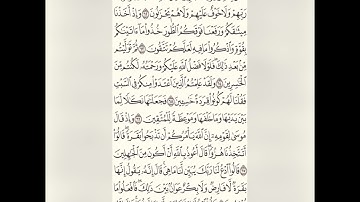 رَبِّهِمْ وَلَا خَوْفٌ عَلَيْهِمْ وَلَا هُمْ يَحْزَنُونَ ٦٢ وَإِذْ أَخَذْنَا
مِيثَٰقَكُمْ وَرَفَعْنَا فَوْقَكُمُ ٱلطُّورَ خُذُوا۟ مَآ ءَاتَيْنَٰكُم
بِقُوَّةٍ وَٱذْكُرُوا۟ مَا فِيهِ لَعَلَّكُمْ تَتَّقُونَ ٦٣ ثُمَّ تَوَلَّيْتُم
مِّنۢ بَعْدِ ذَٰلِكَ فَلَوْلَا فَضْلُ ٱللَّهِ عَلَيْكُمْ وَرَحْمَتُهُۥ لَكُنتُم مِّنَ
ٱلْخَٰسِرِينَ ٦٤ وَلَقَدْ عَلِمْتُمُ ٱلَّذِينَ ٱعْتَدَوْا۟ مِنكُمْ فِى ٱلسَّبْتِ
فَقُلْنَا لَهُمْ كُونُوا۟ قِرَدَةً خَٰسِـِٔينَ ٦٥ فَجَعَلْنَٰهَا نَكَٰلًا لِّمَا
بَيْنَ يَدَيْهَا وَمَا خَلْفَهَا وَمَوْعِظَةً لِّلْمُتَّقِينَ ٦٦ وَإِذْ قَالَ
مُوسَىٰ لِقَوْمِهِۦٓ إِنَّ ٱللَّهَ يَأْمُرُكُمْ أَن تَذْبَحُوا۟ بَقَرَةً قَالُوٓا۟
أَتَتَّخِذُنَا هُزُوًا قَالَ أَعُوذُ بِٱللَّهِ أَنْ أَكُونَ مِنَ ٱلْجَٰهِلِينَ
٦٧ قَالُوا۟ ٱدْعُ لَنَا رَبَّكَ يُبَيِّن لَّنَا مَا هِىَ قَالَ إِنَّهُۥ يَقُولُ إِنَّهَا
بَقَرَةٌ لَّا فَارِضٌ وَلَا بِكْرٌ عَوَانٌۢ بَيْنَ ذَٰلِكَ فَٱفْعَلُوا۟ مَا